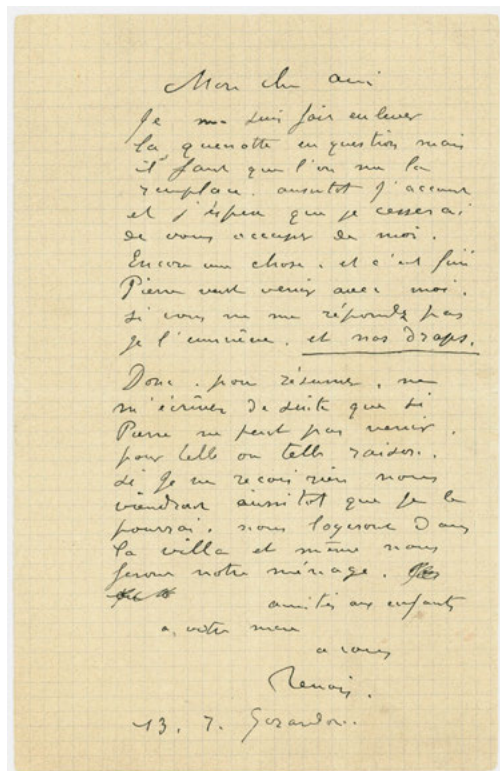 Mon cher ami
Je me suis fait enlever
la quenotte en question mais
il faut que l'on me la
remplace. aussitot j'accours
et j'espère que je cesserai
de vous occuper de moi.
Encore une chose. et c'est fini
Pierre veut venir avec moi.
si vous ne me répondez pas
je l'emmène. et nos draps.
Donc. pour résumer. ne
m'écrivez de suite que si
Pierre ne peut pas venir.
pour telle ou telle raison.
si je ne reçois rien nous
viendrons aussitot que je le
pourrai. nous logerons dans
la villa et même nous
ferons notre ménage.
amitiés aux enfants
a votre mere
a vous
Renoir.
13. 7.